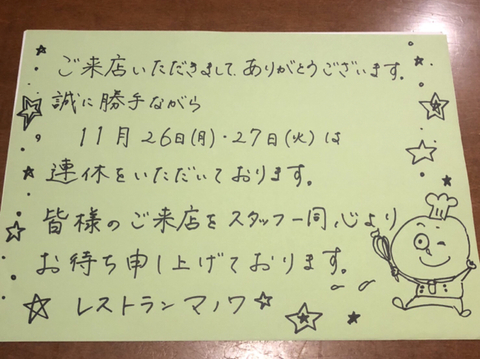 ご来店いただきまして、ありがとうございます。
誠に勝手ながら
11月26日(月)・27日(火)は
連休をいただいております。
皆様のご来店をスタッフ一同、心より
お待ち申し上げております。
レストランマノワ